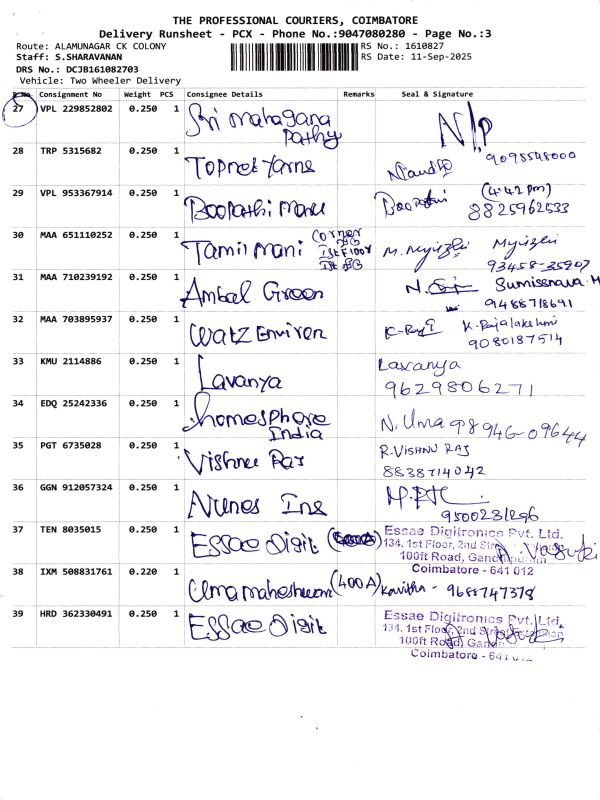 THE PROFESSIONAL COURIERS, COIMBATORE
Delivery Runsheet - PCX - Phone No.:9047080280 - Page No.:3
Route: ALAMUNAGAR CK COLONY RS No.: 1610827
Staff: S.SHARAVANAN RS Date: 11-Sep-2025
DRS No.: DCJB161082703
Vehicle: Two Wheeler Delivery
S No. Consignment No Weight PCS Consignee Details Remarks Seal & Signature
27 VPL 229852802 0.250 1 Sri Mahagana N/P
Pathy
28 TRP 5315682 0.250 1 Topnet Yarns 9095548000
29 VPL 953367914 0.250 1 Boopathi Manu Boopathi (4:42 pm)
8825962533
30 MAA 651110252 0.250 1 Tamil Mani Corner
93458-35907
31 MAA 710239192 0.250 1 Ambal Green
9488718691
32 MAA 703895937 0.250 1 Watz Environ K. Rajalakshmi
9080187514
33 KMU 2114886 0.250 1 Lavanya Lavanya
9629806271
34 EDQ 25242336 0.250 1 homosphere N. Uma 98946-09644
India
35 PGT 6735028 0.250 1 Vishnu Raj R-VISHNU RAJ
8838714042
36 GGN 912057324 0.250 1 Nunes Ine
9500231296
37 TEN 8035015 0.250 1 Essae Digit Essae Digitronics Pvt. Ltd.
134, 1st Floor, 2nd
100ft Road,
Coimbatore - 641 012
38 IXM 508831761 0.220 1 Umamaheshwari (400A) Kavitha - 9688747378
39 HRD 362330491 0.250 1 Essae Digit Essae Digitronics Pvt. Ltd.
134, 1st Floor, 2nd
100ft Road,
Coimbatore - 641